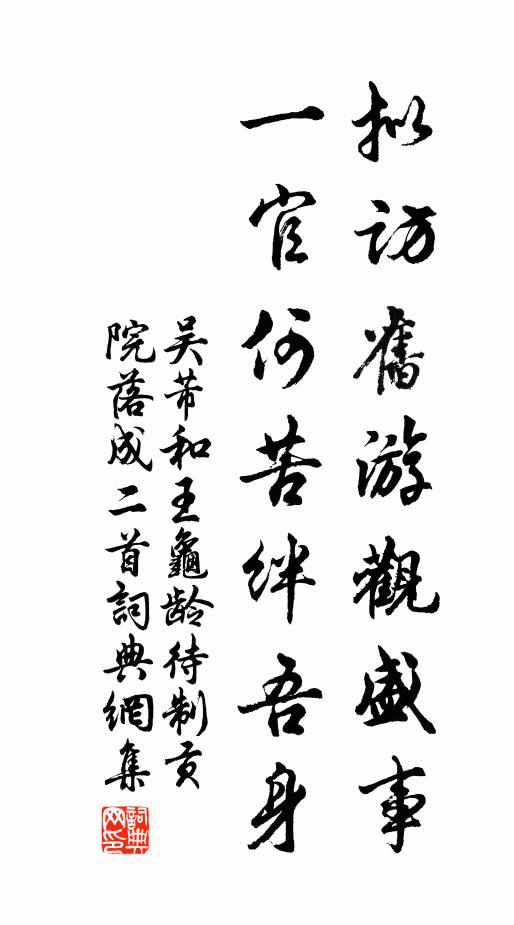 拟訪舊游觀盛事
一官何苦絆吾身
吴芾和王龜龄待制貢
院落成二首詞典網集
詞典
网印